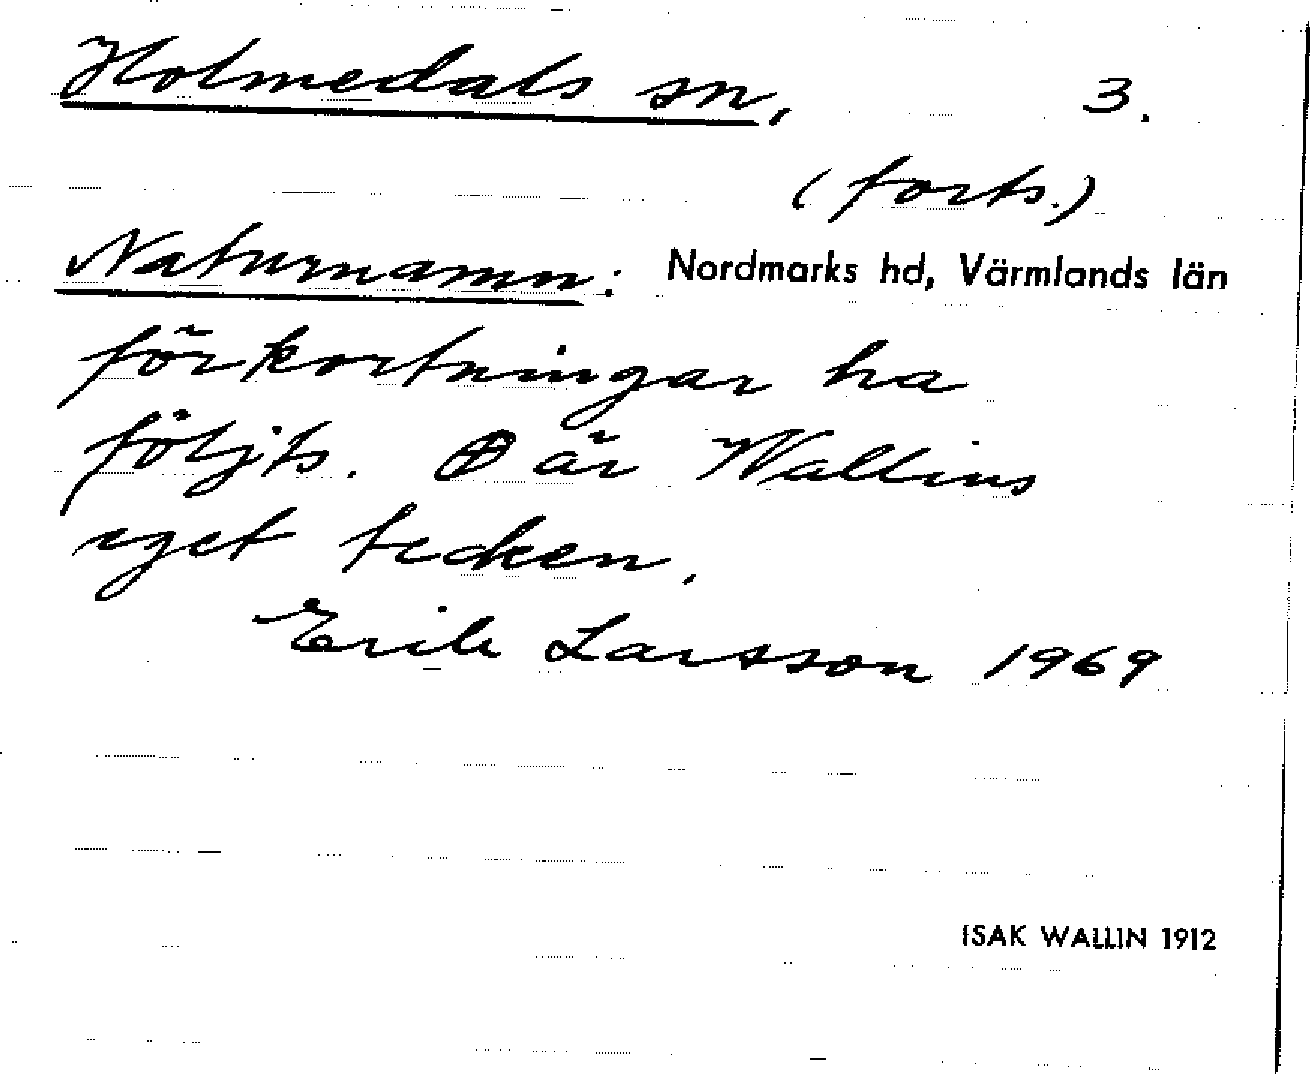 Holmedals sn, 3.
(forts.)
Naturnamn: Nordmarks hd, Värmlands län
förkortningar ha
följts. ⊕ är Wallins
eget tecken,
Erik Larsson 1969
ISAK WALLIN 1912